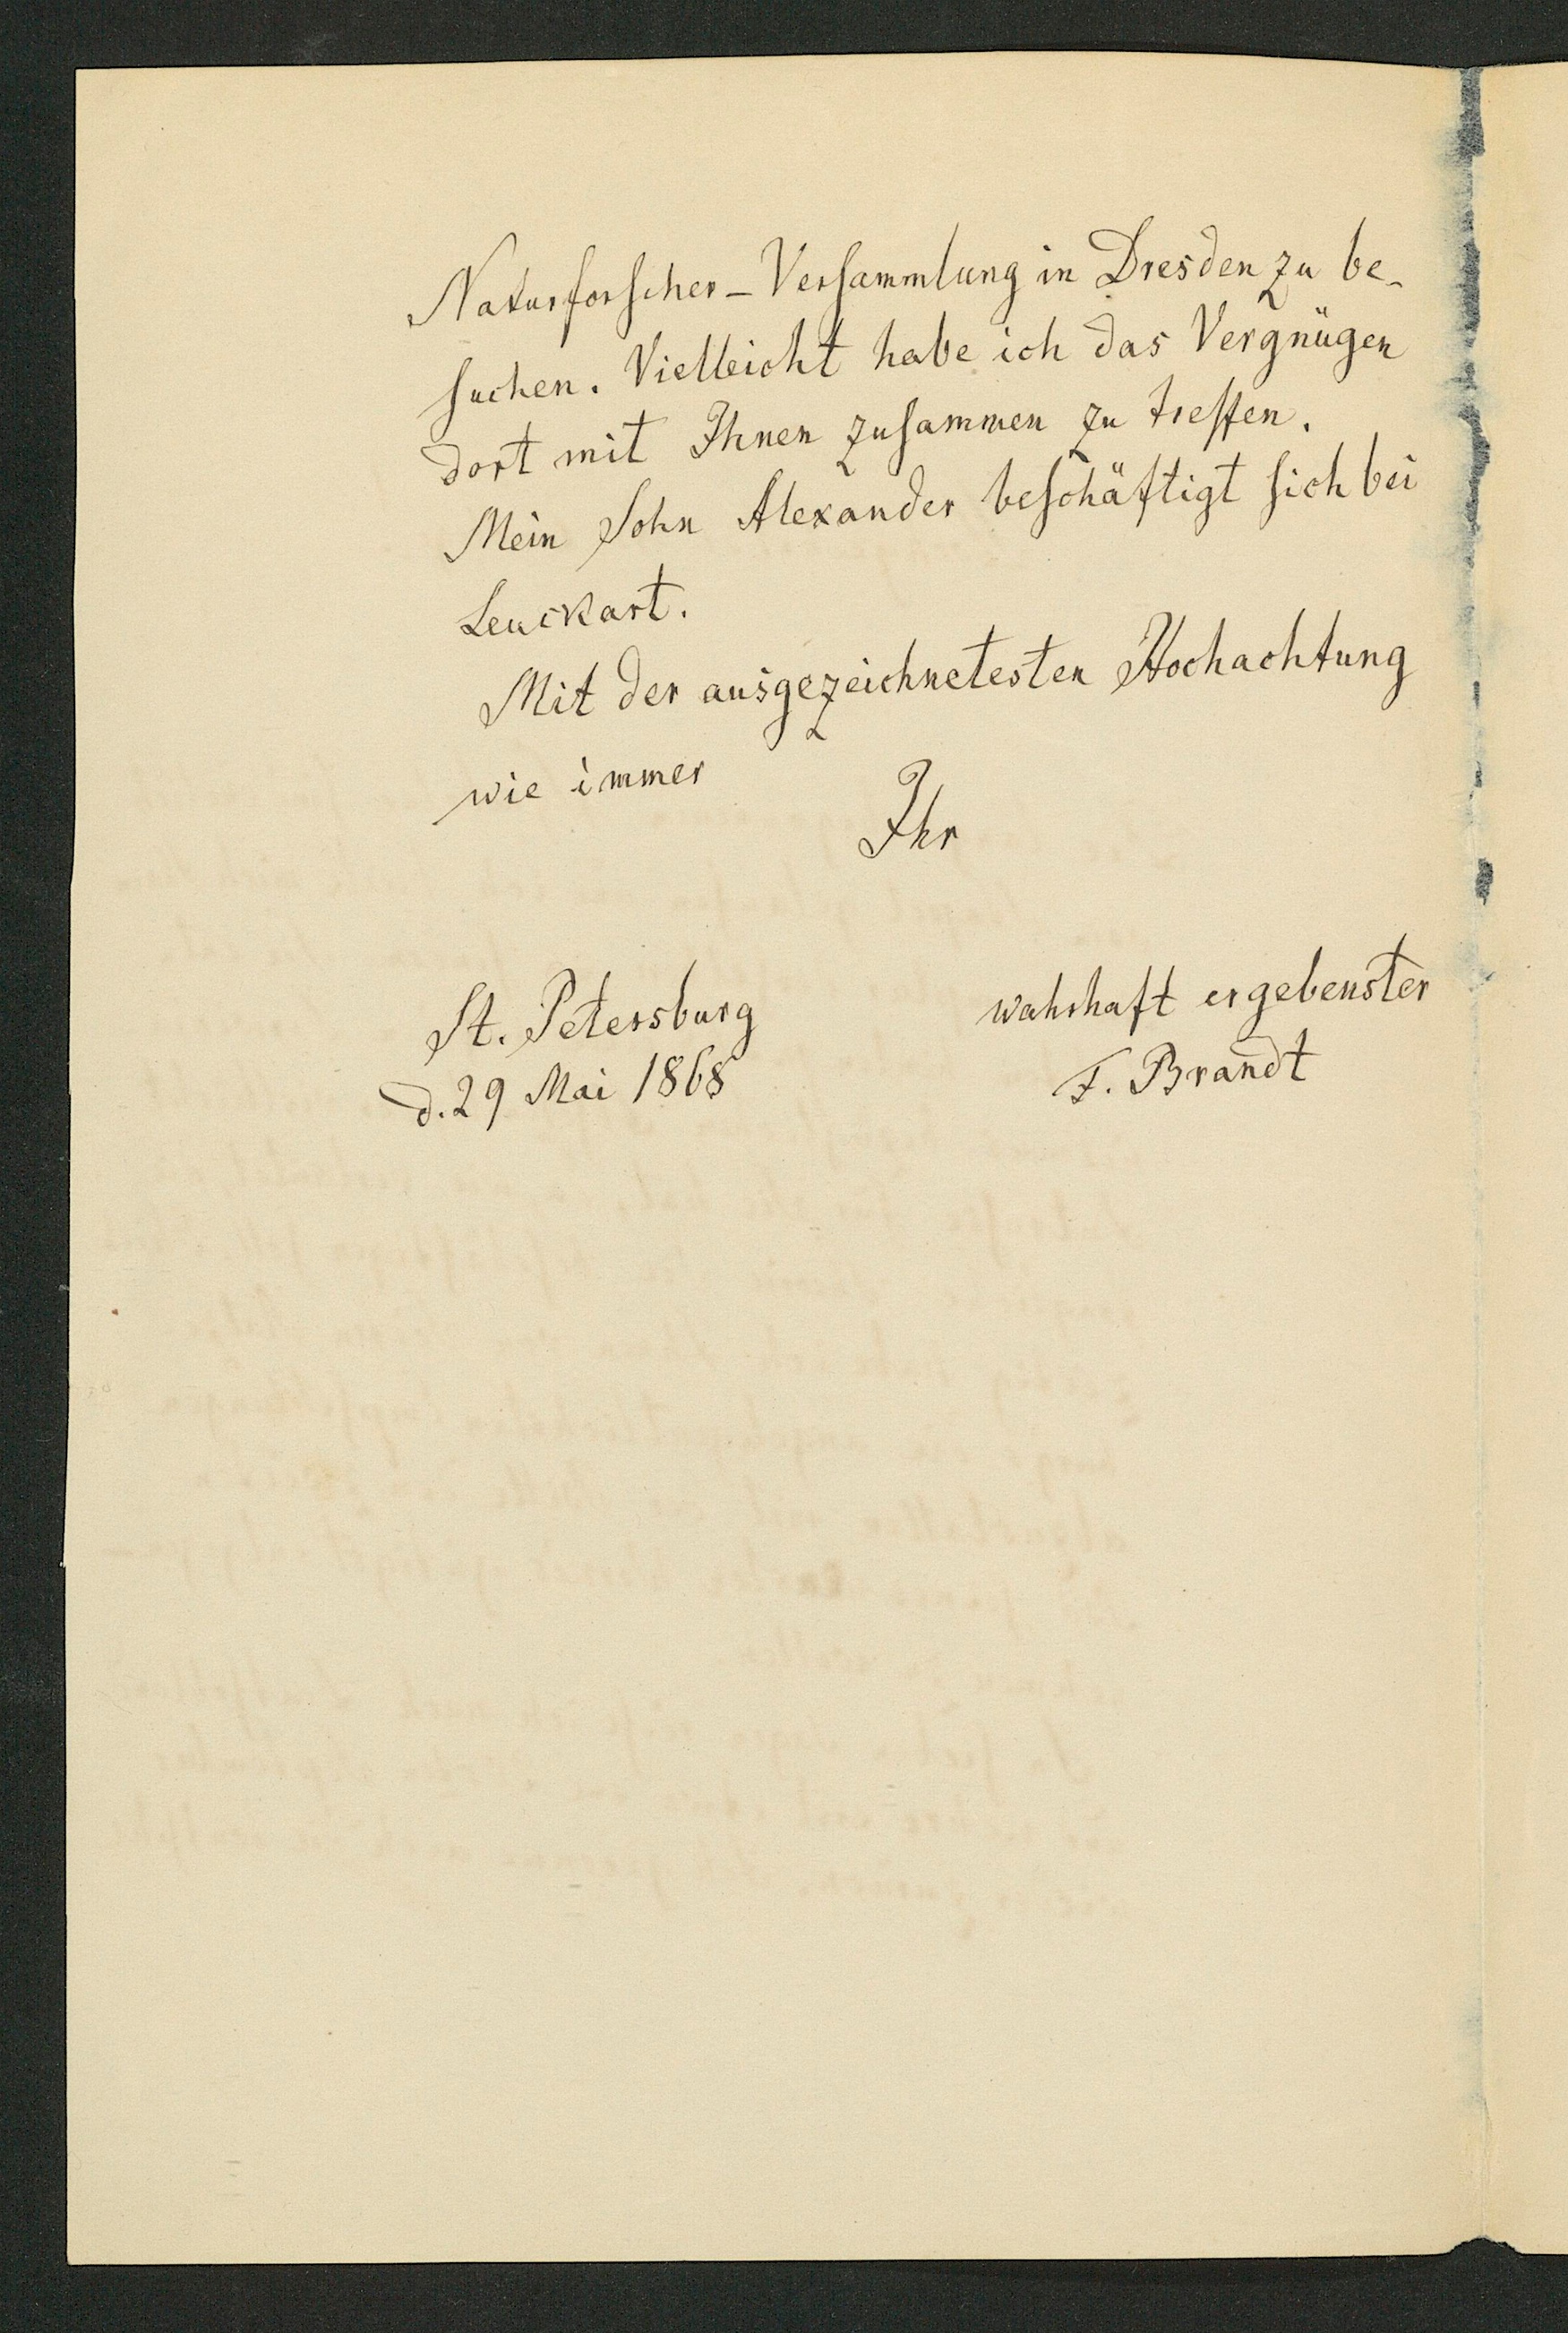 Naturforscher-Versammlung in Dresden zu be-
suchen. Vielleicht habe ich das Vergnügen
dort mit Ihnen zusammen zu treffen.
Mein Sohn Alexander beschäftigt sich bei
Leuckart.
Mit der ausgezeichnetesten Hochachtung
wie immer
Ihr
wahrhaft ergebenster
F. Brandt
St. Petersburg
d. 29 Mai 1868